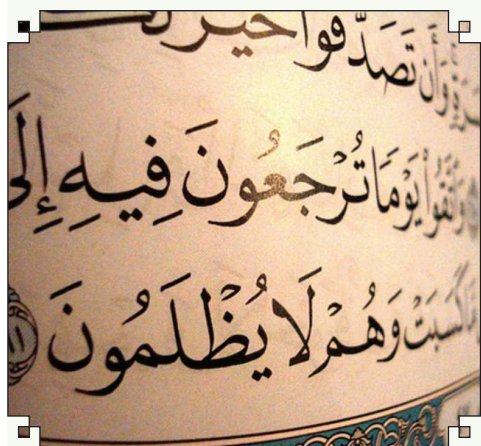 وَأَن تَصَدَّقُوا خَيْرٌ
وَاتَّقُوا يَوْمًا تُرْجَعُونَ فِيهِ إِلَى
مَّا كَسَبَتْ وَهُمْ لَا يُظْلَمُونَ